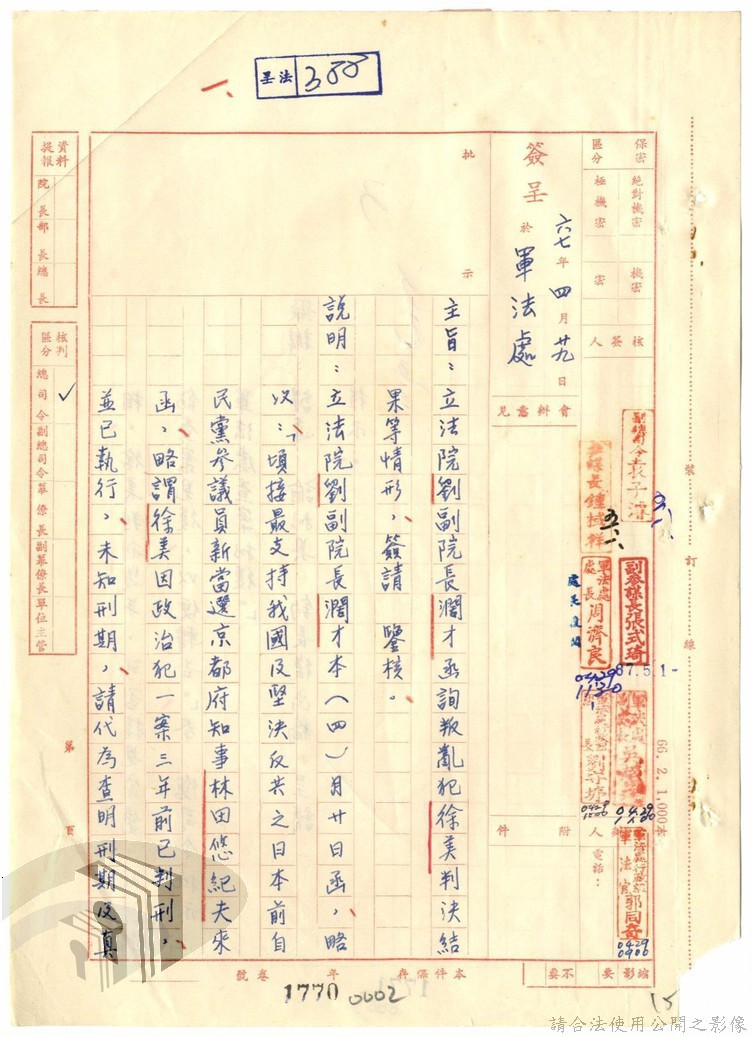 呈法 388
一、
保密區分
絕對機密
極機密
機密
密
核簽人
會辦意見
附件
辦人
電話：
縮影 要 不要
裝訂線
66.2.1.000本
簽呈 於 軍法處
六七年四月廿九日
批示
主旨：立法院劉副院長濶才函詢叛亂犯徐美判決結
果等情形，簽請　鑒核。
說明：立法院劉副院長濶才本（四）月廿日函，略
以：「頃接最支持我國及堅決反共之日本前自
民黨參議員新當選京都府知事林田悠紀夫來
函，略謂徐美因政治犯一案三年前已判刑，
並已執行，未知刑期，請代為查明刑期及真
資料提報
院長
部長
總長
核判區分
總司令
副總司令
幕僚長
副幕僚長
單位主管
✓
第　頁
本件係存　年　卷　號
五.八
五.一.
副參謀長張式琦
67.5.1-
軍法處處長周濟良
0429
1130
0429
1200
0429
軍法官郭同奇
0429
0900
1770
0002
15
請合法使用公開之影像